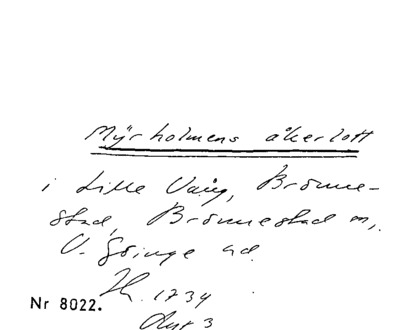 Myrholmens åkerlott
i Lille Vång, Brönne-
stad, Brönnestad sn,
V. Göinge hd.
1734
Nr 8022.